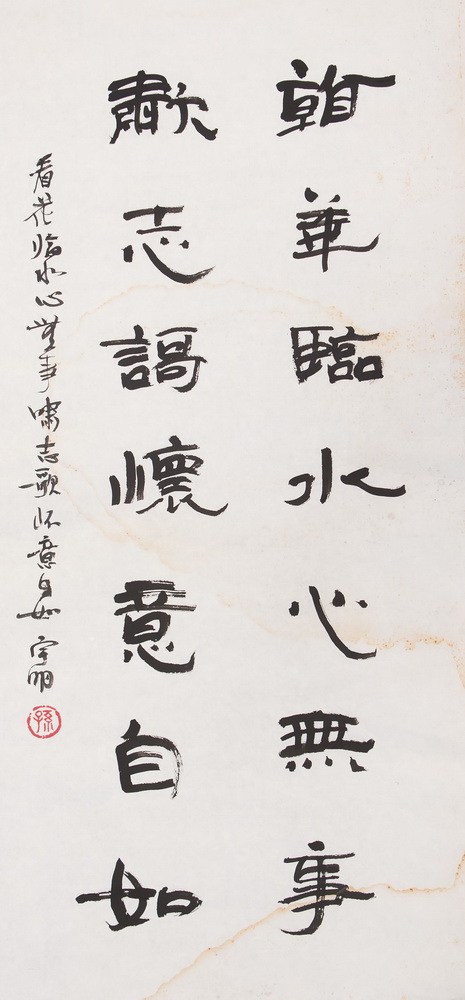 看華臨水心無事
歗志謌懷意自如
看花临水心無事嘯志歌怀意自如 宇明
孫